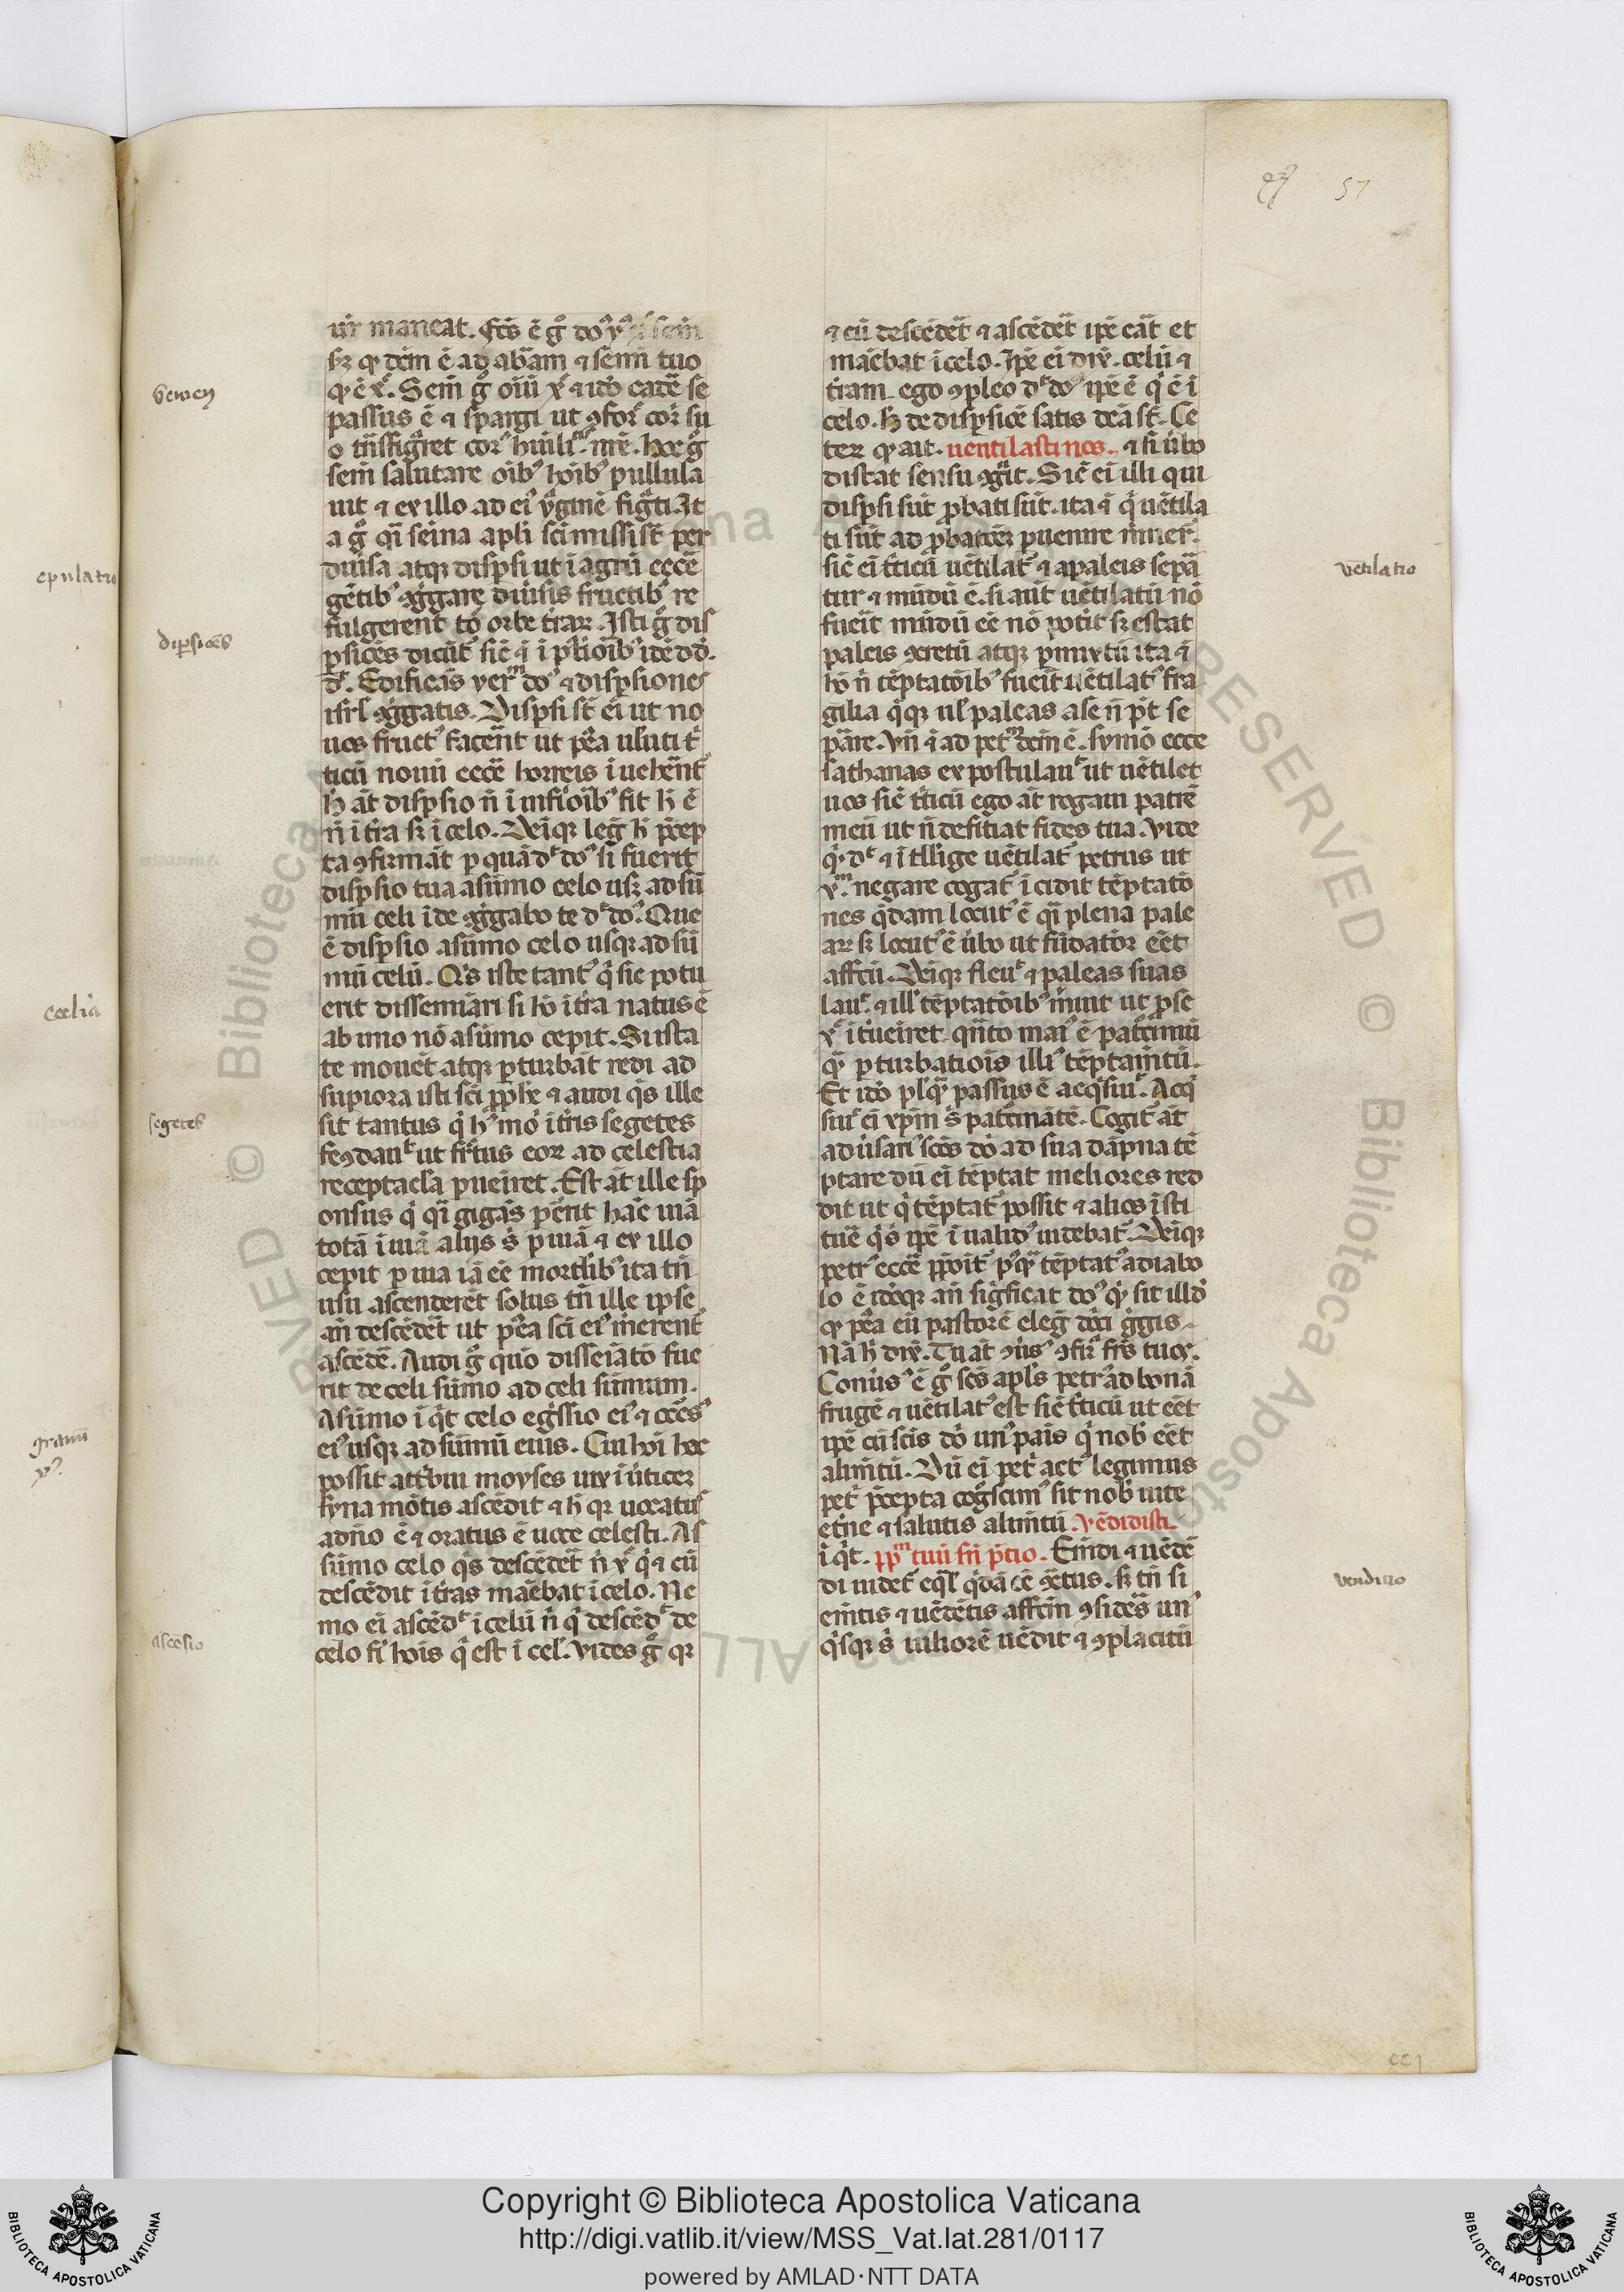 57
ur maneat. Fcs̄ ē g̊ do᷒
sꝫ qꝫ dcm̄ ē ad abā̄m ⁊ semī tuo
qꝫ ē x̄. Sem̄ g̊ oīū x̄ ⁊ ido eadē se
passus ē ⁊ spargi ut ꝯfor̄ cor̄ su
o tn̄sfigret cor̄ humili nr̄e. hoc g̊
sem̄ salutare oib᷒ hoib᷒ pullula
uit ⁊ ex illo ad ei᷒ ygmē figti. It
a g̊ qī semīa apl̄i sc̄i missi st̄ per
diuīsa atqꝫ disp̱si ut ī agrū eccē
gētib᷒ ꝯggare diuīsis fructib᷒ re
fulgerent to orbe trar̄. Isti g̊ dis
p̱siōes dicūt᷒ sic̄
d᷒. Edificās do᷒ ⁊ disp̱siones
isrl̄ ꝯggatis. Disp̱si st̄ eī ut no
uos fruct᷒ facēnt ut p᷒ea uluti t̄
ticū nouū eccē horreis ī uehēnt᷒
ħ āt disp̱sio n̄ ī īnfiōib᷒ fit ħ ē
n̄ ī tr̄a sꝫ ī celo. Deīqꝫ leg̊ ħ p̄cep
ta ꝯfirmāt p̱ quā d᷒ do᷒ si fuerit
disp̱sio tua asūmo celo usqꝫ ad sū
mū celi īde ꝯg̊gabo te d᷒ do᷒. Que
ē disp̱sio asūmo celo usqꝫ ad sū
mū celū. Qis iste tant᷒ qi sic potu
erit dissemīari si hō ītr̄a natus ē
ab imo nō asūmo cepit. Si ista
te mouēt atqꝫ p̱turbāt redi ad
sup̱iora isti sc̄i ⁊ audi qis ille
sit tantus qi h᷒ mo ītr̄is segetes
feꝯdau᷒ ut frtus eoꝝ ad celestia
receptacl̄a p̱ueīret. Est āt ille sp̄
onsus qi qī gigās p̱ērit hāc uiā
totā īuiā alijs s̄ p̱uiā ⁊ ex illo
cepit p̱uia iā ēē mortlib᷒ ita tn̄
usu ascenderēt solus tn̄ ille ipse
an̄ descēdēt ut p᷒ea sc̄i ei᷒ merent᷒
ascēdē. Audi g̊ quō disseīatō fue
rit de celi sūmo ad celi sūmum.
Asūmo īqit celo eg̊ssio ei᷒ ⁊ occ̄s᷒
ei᷒ usqꝫ ad sūmū eius. Cui hoi hoc
possit att̄bui moyses uix ī ūticeꝫ
syna mōtis ascēdit ⁊ ħ qꝫ uocatus
adn̄o ē ⁊ oratus ē uoce celesti. As
sūmo celo qis descēdēt n̄ x̄ qi ⁊ cū
descēdit ītr̄as māebat ī celo. Ne
mo eī ascēd᷒ ī celū n̄ qi descēd᷒ de
celo fi᷒ hoīs qi est ī cel̄. Vides g̊ qꝫ
⁊ cū descēdēt ⁊ ascēdēt ip̄e eāt et
māebat ī celo. Ip̄e eī dix̄. celū ⁊
tr̄am ego ꝯpleo d᷒ do᷒ ip̄e ē qi ē ī
celo. ħ de disp̱siōe satis dc̄a st̄. Ce
teꝝ qꝫ ait. uentilasti nos. ⁊ si ūbo
distat sensu ꝯgīt. Sic̄ eī illi qui
disp̱si sūt p̱bati sūt. ita ⁊ qi uētila
ti sūt ad p̱batōꝫ p̱uenire mner̄.
sic̄ eī tticū uētilat᷒ ⁊ apaleis sepā
tur ⁊ mūdū ē. si aūt uētilatū nō
fueīt mūdū ēē nō potit sꝫ estat
paleis ꝯcretū atqꝫ p̱mixtū ita ⁊
hō n̄ tēptatōib᷒ fueīt uētilat᷒ fra
gilia qiqꝫ ul̄ paleas a se n̄ pt̄ se
pāre. Vn̄ ⁊ ad petm dcm̄ ē. symō ecce
sathanas expostulau᷒ ut uētilet
uos sic̄ tticū ego āt rogaui patrē
meū ut n̄ defitiat fides tua. Vide
qi d᷒ ⁊ ītll̄ige uētilat᷒ petrus ut
x̄m negare cogat᷒ īcidit tēptatō
nes qidam locut᷒ ē qī plena pale
aꝝ sꝫ locut᷒ ē ūbo ut fūdatōr eēt
affcū. Deīqꝫ fleu᷒ ⁊ paleas suas
lau᷒. ⁊ ill̄ tēptatōib᷒ mūut ut p̱ se
x̄ ītueiret qn̄to mai᷒ ē patc̄īmū
qꝫ p̱turbatiōis illi᷒ tēptamtū.
Et ido pl᷒qꝫ passus ē acqisiu᷒. Acqi
siu᷒ eī xp̄m s̄ patc̄īnātē. Cogit᷒ āt
adūsari᷒ sc̄os do ad sua dāpna tē
ptare dū eī tēptat meliores red
dit ut qi tēptat᷒ possit ⁊ alios īsti
tuē qis ip̄e īualid᷒ uidebat᷒. Deīqꝫ
petr᷒ eccē p̱poit᷒ p᷒qꝫ tēptat᷒ adiabo
lo ē idoqꝫ an̄ sigficat do᷒ qi sit illd̄
qꝫ p᷒ea eū pastorē eleg̊ dn̄i g̊gis.
Nā ħ dix̄. Tu āt ꝯūs᷒ ꝯfir̄ fr̄s tuos.
Conūs᷒ ē g̊ sc̄s apl̄s petr᷒ ad bonā
frugē ⁊ uētilat᷒ est sic̄ tticū ut eēt
ip̄e cū sc̄is do un᷒ pais qi nob̄ eēt
alimtū. Dū eī pet̄ act᷒ legimus
pet̄ p̄cepta cog̊scim᷒ sit nob̄ uite
et̄ne ⁊ salutis alimtū. Vēdidisti.
īqit. pp̄lm tuū sn̄ p̄tio. Emdi ⁊ uēdē
di uidet᷒ eql̄ qidā cē ꝯtus. sꝫ tn̄ si
emtis ⁊ uēdētis affcm̄ ꝯsidēs un᷒
qisqꝫ s̄ uiliorē uēdit ⁊ ꝯplacitū
semen
epulatu
dispsiōes
cœlia
segetes
granū
ascēsio
vētilatio
venditio
cc1
Copyright © Biblioteca Apostolica Vaticana
http://digi.vatlib.it/view/MSS_Vat.lat.281/0117
powered by AMLAD·NTT DATA
BIBLIOTECA APOSTOLICA VATICANA
BIBLIOTECA APOSTOLICA VATICANA